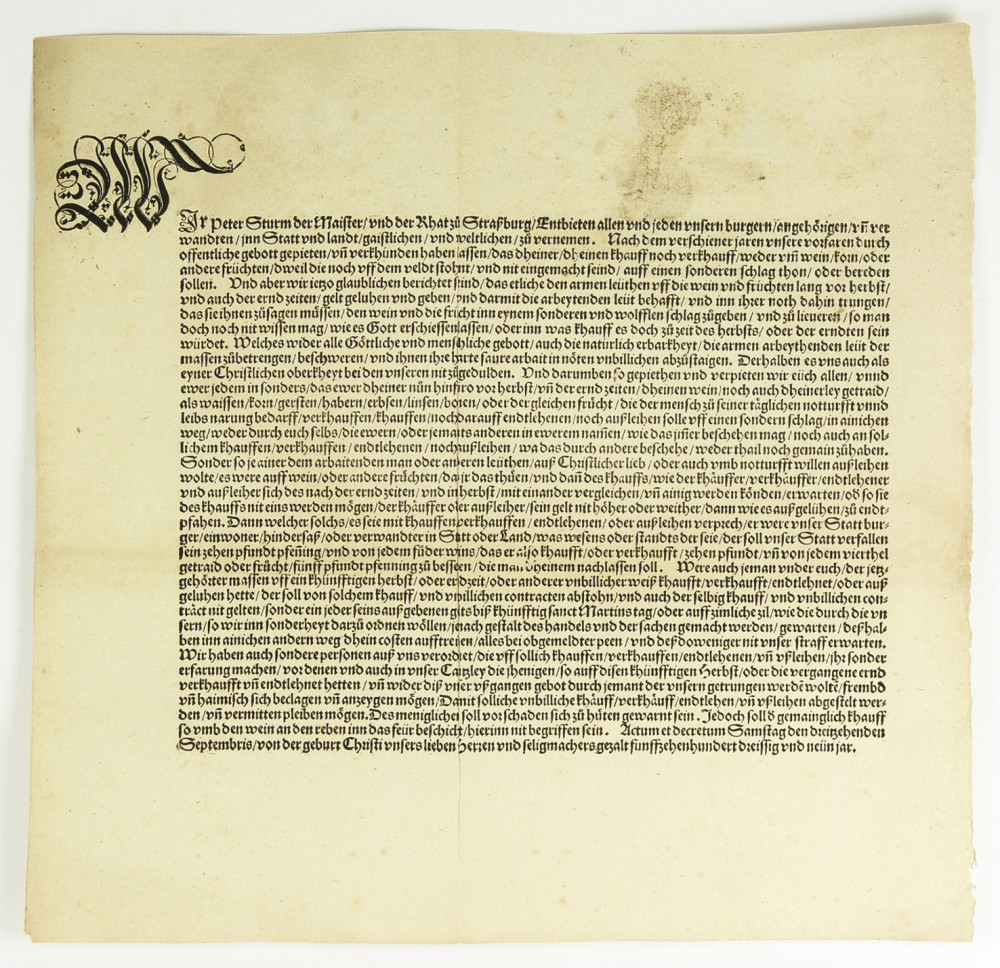 WIr Peter Sturm der Maister/vnd der Rhat zů Straßburg/Entbieten allen vnd jeden vnsern burgern/angehörigen/vñ ver
wandten/jnn Statt vnd landt/gaistlichen/vnd weltlichen/zů vernemen. Nach dem verschiener jaren vnsere vorfaren durch
offentliche gebott gepieten/vñ verkhünden haben lassen/das dheiner/dheinen khauff noch verkhauff/weder vm̃ wein/korn/oder
andere früchten/dweil die noch vff dem veldt stohnt/vnd nit eingemacht seind/auff einen sonderen schlag thon/oder bereden
sollen. Vnd aber wir ietzo glaublichen berichtet seind/das etliche den armen leüthen vff die wein vnd früchten lang vor herbst/
vnd auch der ernd zeiten/gelt geluhen vnd geben/vnd darmit die arbeytenden leüt behafft/vnd inn ihrer noth dahin trungen/
das sie ihnen zůsagen müssen/den wein vnd die frücht inn eynem sonderen vnd wolfflen schlag zůgeben/vnd zů lieueren/so man
doch noch nit wissen mag/wie es Gott erschiessen lassen/oder inn was khauff es doch zů zeit des herbsts/oder der erndten sein
würdet. Welches wider alle Göttliche vnd menschliche gebott/auch die natürlich erbarkheyt/die armen arbeythenden leüt der
massen zůbetrengen/beschweren/vnd ihnen ihre harte saure arbait in nöten vnbillichen abzůstaigen. Derhalben es vns auch als
eyner Christlichen oberkheyt bei den vnseren nit zůgedulden. Vnd darumben so gepiethen vnd verpieten wir eüch allen/vnnd
ewer jedem in sonders/das ewer dheiner nůn hinfüro vor herbst/vñ der ernd zeiten/dheinen wein/noch auch dheinerley getraid/
als waissen/korn/gersten/habern/erbsen/linsen/bonen/oder der gleichen frücht/die der mensch zů seiner täglichen notturfft vnnd
leibs narung bedarff/verkhauffen/khauffen/noch darauff endtlehenen/noch außleihen solle vff einen sondern schlag/in ainichen
weg/weder durch euch selbs/die ewern/oder jemats anderen in ewerem nam̃en/wie das jm̃er beschehen mag/noch auch an sol-
lichem khauffen/verkhauffen/endtlehenen/noch außleihen/wa das durch andere beschehe/weder thail noch gemain zů haben.
Sonder so je ainer dem arbaitenden man oder anderen leüthen/auß Christlicher lieb/oder auch vmb notturfft willen außleihen
wolte/es were auff wein/oder andere früchten/da jr das thüen/vnd dañ des khauffs/wie der khäuffer/verkhäuffer/endtlehener
vnd außleiher sich des nach der ernd zeiten/vnd in herbst/mit einander vergleichen/vñ ainig werden könden/erwarten/ob so sie
des khauffs nit eins werden mögen/der khäuffer oder außleiher/sein gelt nit höher oder weither/dann wie es außgelühen/zů endt-
pfahen. Dann welcher solchs/es seie mit khauffen/verkhauffen/endtlehenen/oder außleihen verprech/er were vnser Statt bur-
ger/einwoner/hindersaß/oder verwandter in Statt oder Land/was wesens oder standts der seie/der soll vnser Statt verfallen
sein zehen pfundt pfening/vnd von jedem fůder wins/das er also khaufft/oder verkhaufft/zehen pfundt/vñ von jedem vierthel
getraid oder frücht/fünff pfundt pfenning zů bessern/die man dheinem nachlassen soll. Were auch jeman vnder euch/der jetz-
gehörter massen vff ein khünfftigen herbst/oder erndzeit/oder anderer vnbillicher weiß khaufft/verkhaufft/endtlehnet/oder auß
geluhen hette/der soll von solchem khauff/vnd vnbillichen contracten abstohn/vnd auch der selbig khauff/vnd vnbillichen con-
träct nit gelten/sonder ein jeder seins außgebenen gelts biß khünfftig sanct Martins tag/oder auff zimliche zil/wie die durch die vn
sern/so wir inn sonderheyt darzů ordnen wöllen/je nach gestalt des handels vnd der sachen gemacht werden/gewarten/deßhal-
ben inn ainichen andern weg dhein costen aufftreiben/alles bei obgemeldter peen/vnd deßdoweniger nit vnser straff erwarten.
Wir haben auch sondere personen auß vns verordnet/die vff sollich khauffen/verkhauffen/endtlehenen/vñ vßleihen/jhr sonder
erfarung machen/vor denen vnd auch in vnser Cantzley die jhenigen/so auff disen khünfftigen Herbst/oder die vergangene ernd
verkhaufft vñ endtlehnet hetten/vñ wider diß vnser vßgangen gebot durch jemant der vnsern getrungen werdẽ wolte/frembd
vñ haimisch sich beclagen vñ anzeygen mögen/Damit solliche vnbilliche khäuff/verkhäuff/endtlehen/vñ vßleihen abgestelt wer-
den/vñ vermitten pleiben mögen. Des meniglichen soll vor schaden sich zů hüten gewarnt sein. Jedoch soll d̃ gemainglich khauff
so vmb den wein an den reben inn das feür beschicht/hierinn nit begriffen sein. Actum et decretum Samstag den dreitzehenden
Septembris/von der geburt Christi vnsers lieben herren vnd seligmachers gezalt fünffzehenhundert dreissig vnd neün jar.